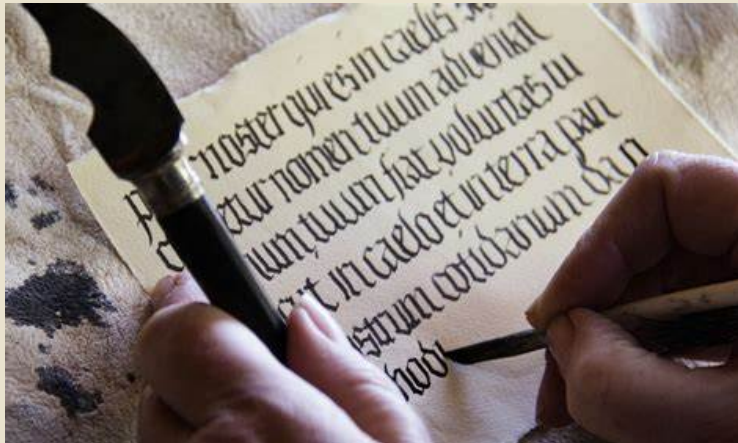 noster qui es in caelis
nomen tuum adveniat
tuum fiat voluntas tu
in caelo et in terra pan
cotidianum da n
hodi